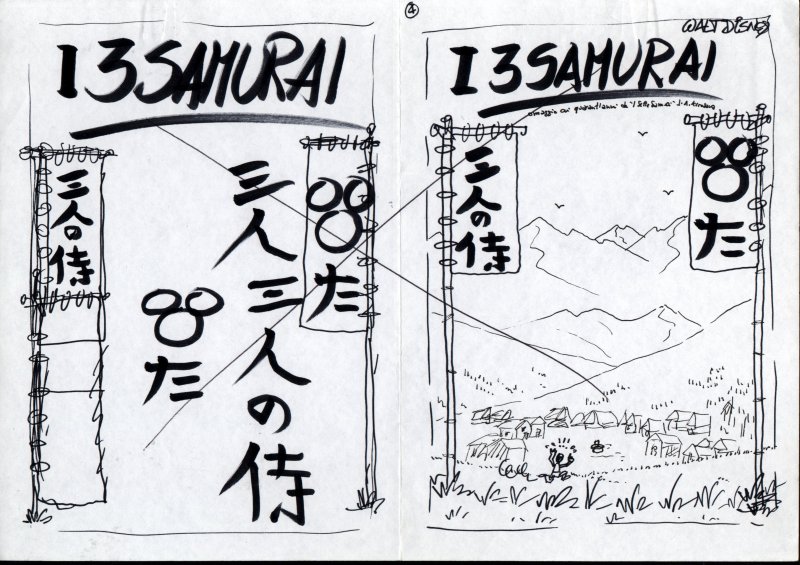 ④
I 3 SAMURAI
三人の侍
た
三人三人の侍
た
WALT DISNEY
I 3 SAMURAI
omaggio ai quarant'anni di "I Sette Samurai" di A. Kurosawa
三人の侍
た